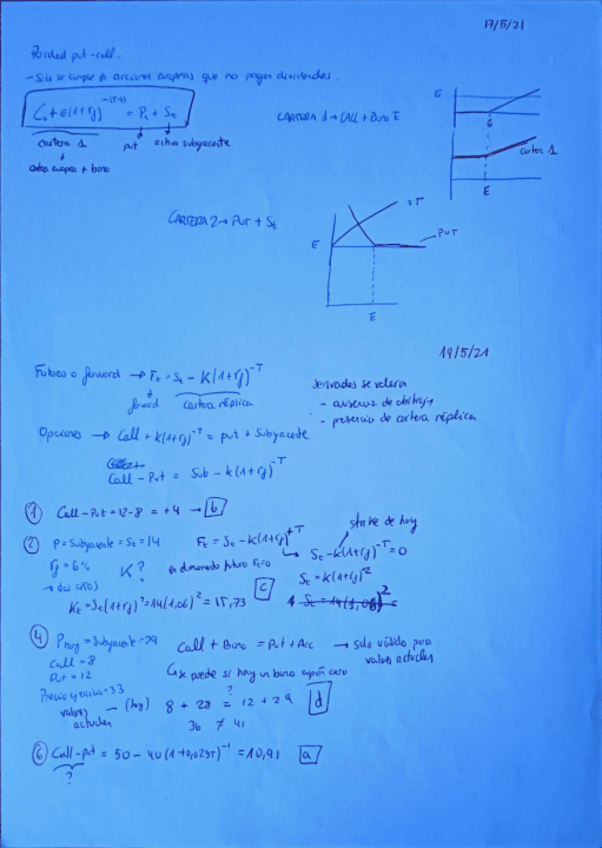 17/5/21
Paridad put-call.
- Solo se cumple en acciones europeas que no pagan dividendos.
C₀ + E(1+rf)^-(T-t) = Pt + St
cartera 1
put
activo subyacente
call europea + bono
CARTERA 1 → CALL + Bono E
E
E
cartera 1
E
CARTERA 2 → PUT + St
ST
PUT
E
E
19/5/21
Futuros o forward → Ft = St - K(1+rf)^-T
forward
cartera réplica
derivados se valora
- ausencia de arbitraje
- presencia de cartera réplica
Opciones → Call + K(1+rf)^-T = put + Subyacente
Call - Put = Sub - K(1+rf)^-T
① Call - Put = 12-8 = +4 → b
② P = Subyacente = St = 14
Ft = St - K(1+rf)^-T
strike de hoy
St - K(1+rf)^-T = 0
rf = 6%
K?
futuro Ft=0
St = K(1+rf)^-2
Kt = St(1+rf)^2 = 14(1,06)^2 = 15,73
c
St = 14(1,06)^2 =
④ Phoy = Subyacente = 29
Call + Bono = Put + Acc → solo válido para valores actuales
Call = 8
Put = 12
se puede si hay un bono cupón cero
Precio ejercicio = 33
valores actuales → (hoy) 8 + 28 = 12 + 29
?
d
36 ≠ 41
⑥ Call - put = 50 - 40(1+0,0235)^-1 = 10,91
a
?